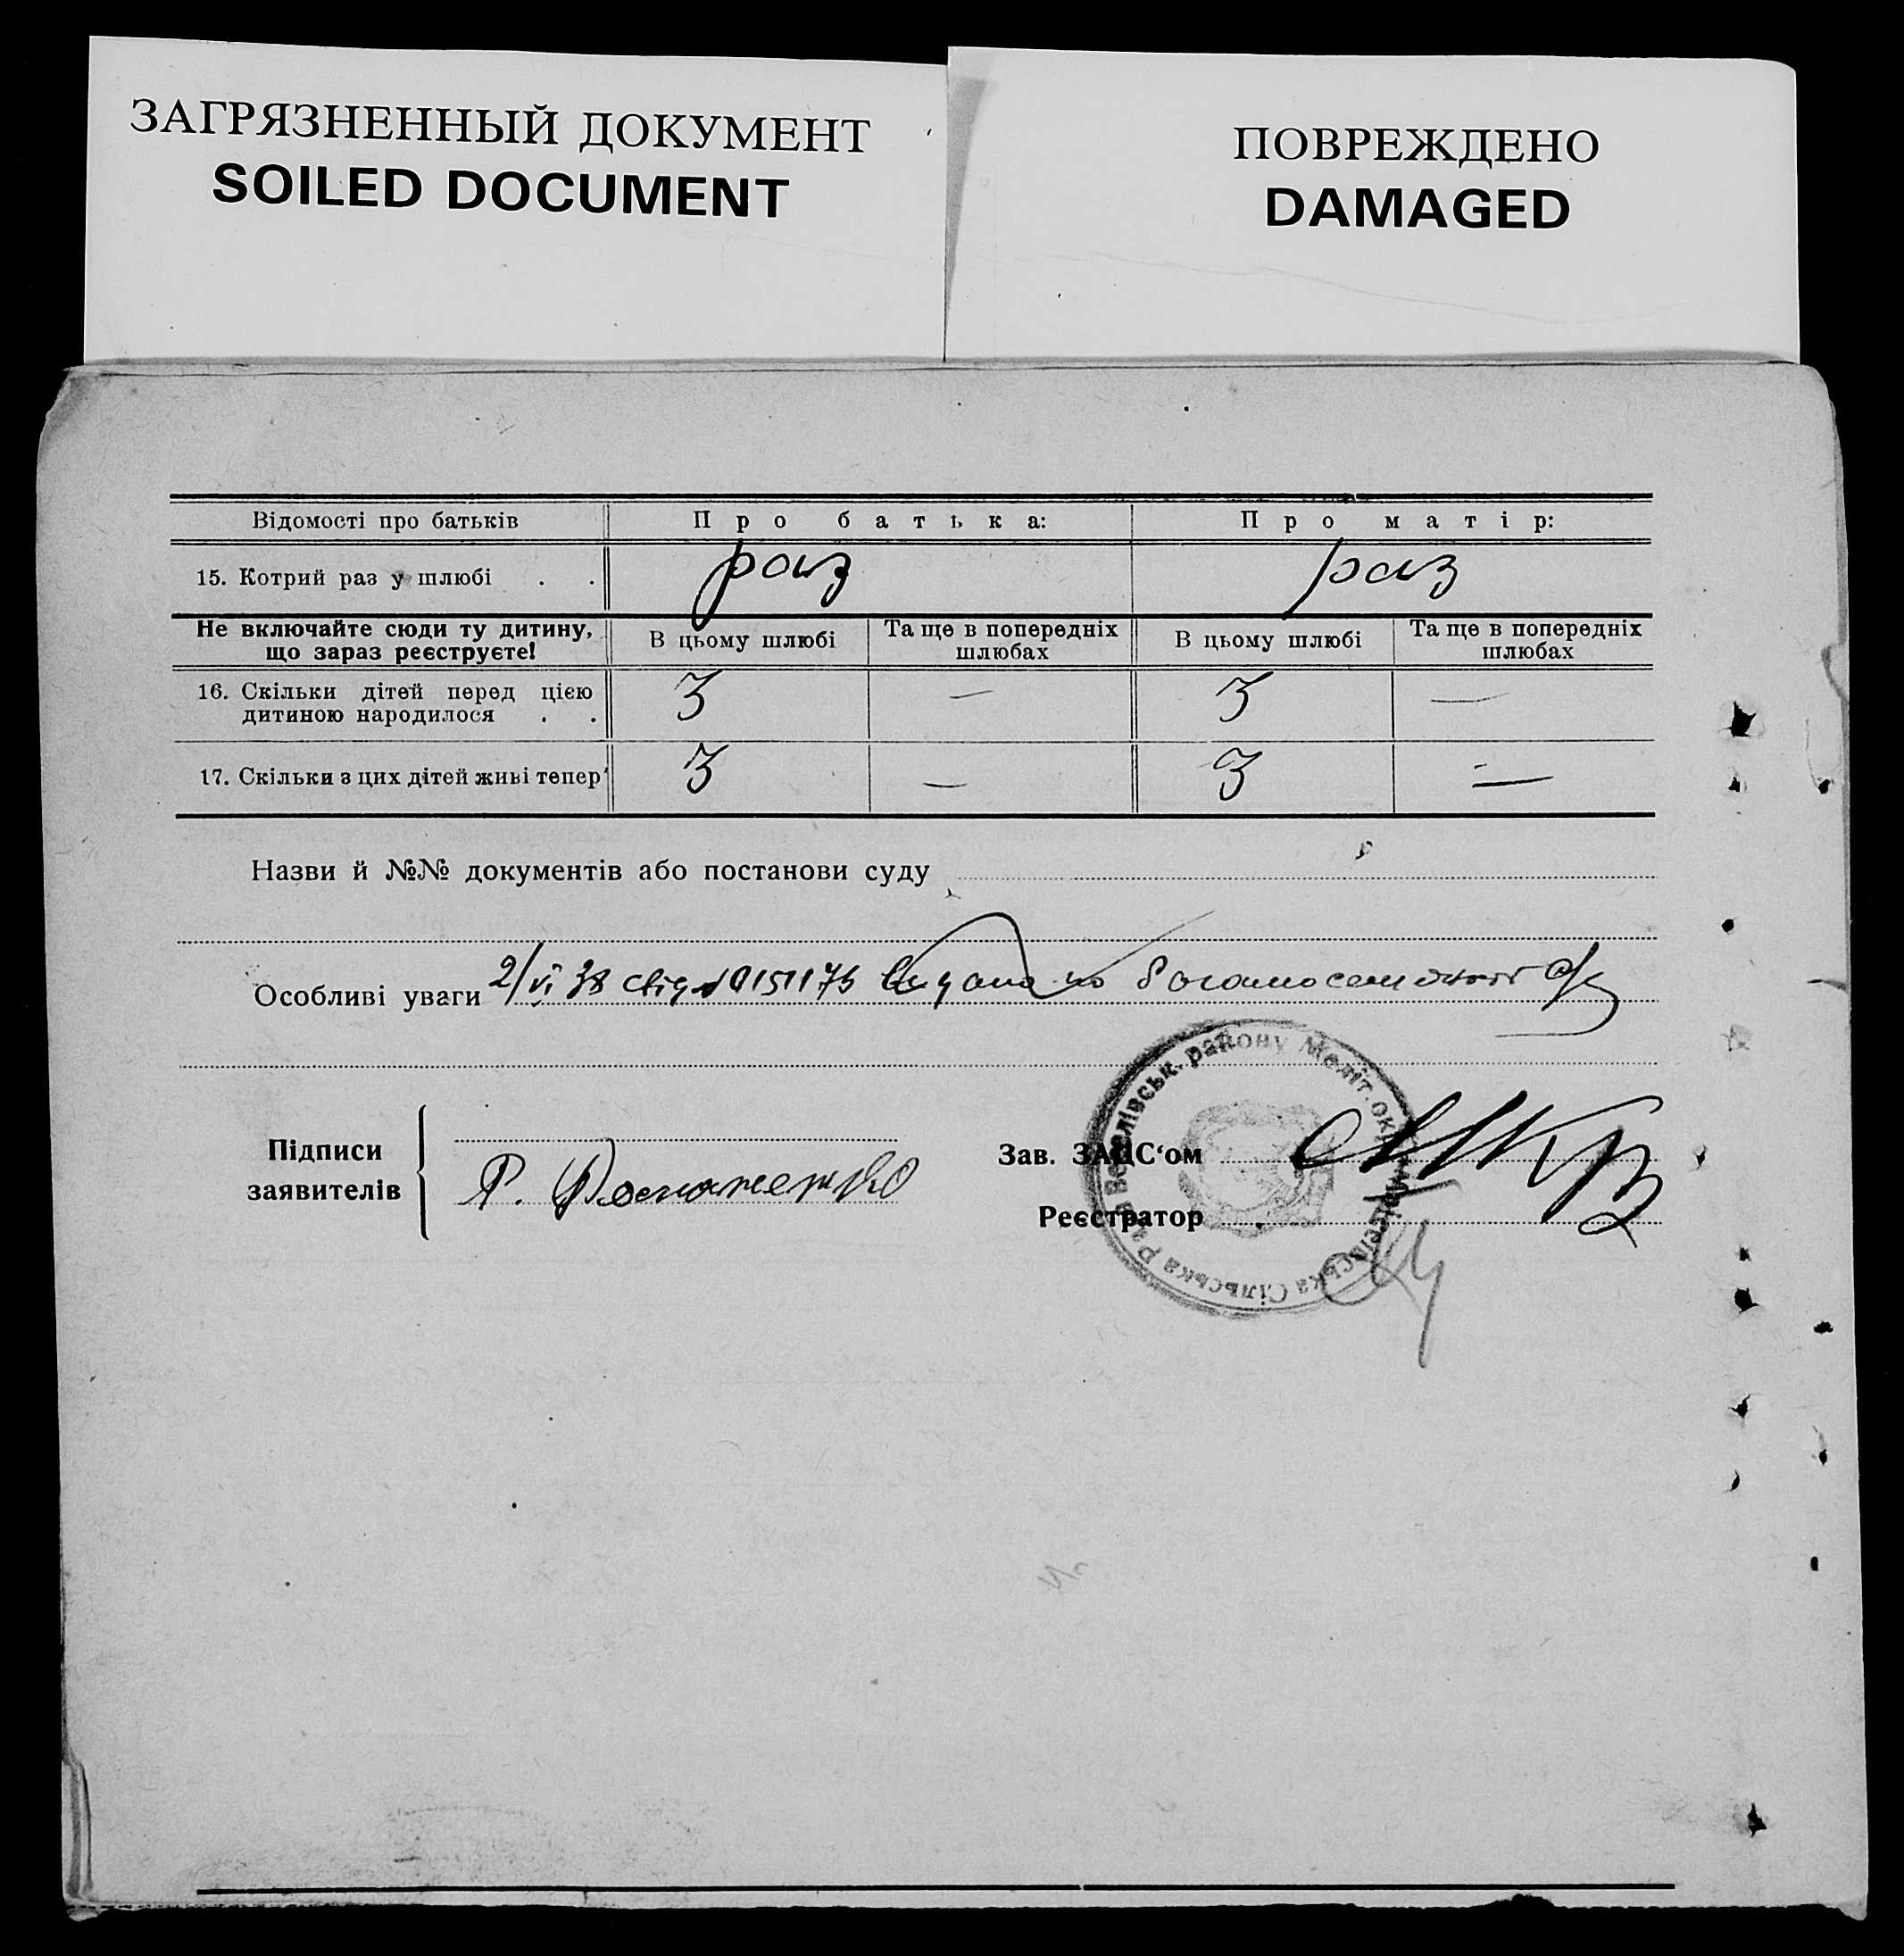 ЗАГРЯЗНЕННЫЙ ДОКУМЕНТ
SOILED DOCUMENT
ПОВРЕЖДЕНО
DAMAGED
Відомості про батьків Про батька: Про матір:
15. Котрий раз у шлюбі . . раз раз
Не включайте сюди ту дитину, що зараз реєструєте! В цьому шлюбі Та ще в попередніх шлюбах В цьому шлюбі Та ще в попередніх шлюбах
16. Скільки дітей перед цією
дитиною народилося . . 3 — 3 —
17. Скільки з цих дітей живі тепер 3 — 3 —
Назви й №№ документів або постанови суду
Особливі уваги 2/VI 38 свід видано по
Підписи
заявителів
Р.
Зав. ЗАЦС‘ом
Реєстратор
Веселівськ. району Меліт. окр.
Сільська Рада